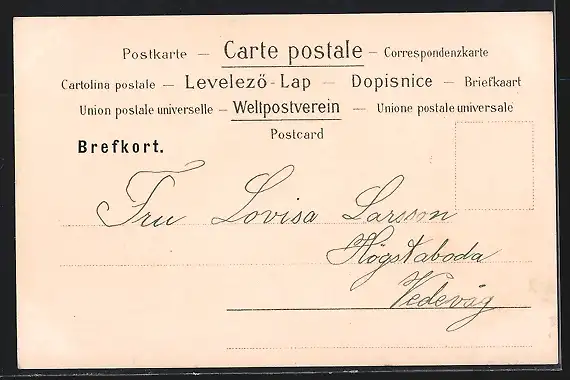 Postkarte — Carte postale — Correspondenzkarte
Cartolina postale — Levelező-Lap — Dopisnice — Briefkaart
Union postale universelle — Weltpostverein — Unione postale universale
Postcard
Brefkort.
Fru Lovisa Larsson
Högstaboda
Vedevåg